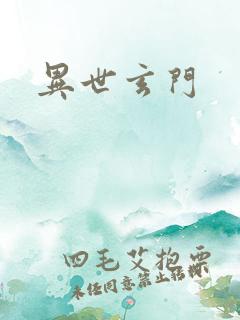 異世玄門
四毛艾抱粟
未任同意禁止转载